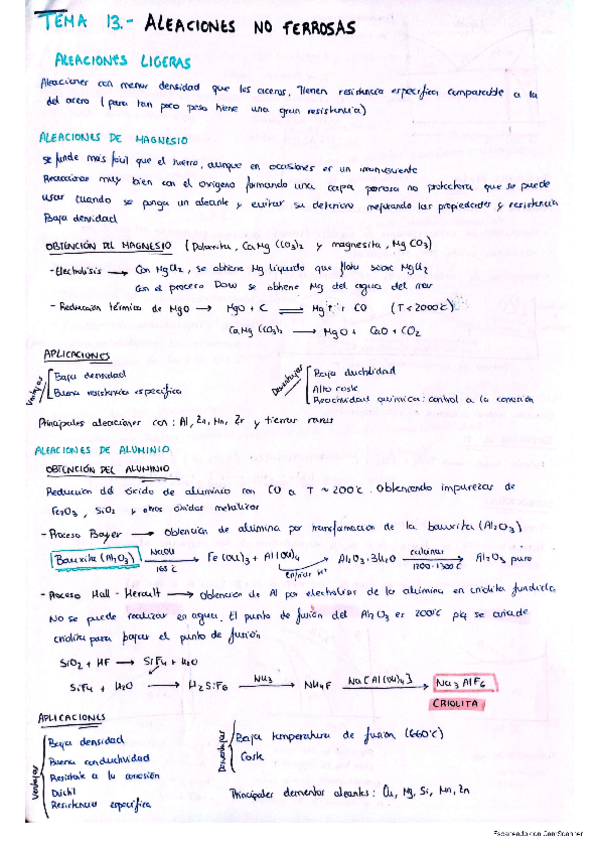 TEMA 13.- ALEACIONES NO FERROSAS
ALEACIONES LIGERAS
Aleaciones con menor densidad que los aceros. Tienen resistencia específica comparable a la
del acero (para tan poco peso tiene una gran resistencia)
ALEACIONES DE MAGNESIO
Se funde más fácil que el hierro, aunque en ocasiones es un inconveniente
Reacciona muy bien con el oxígeno formando una capa porosa no protectora que se puede
usar cuando se ponga un aleante y evitar su deterioro mejorando las propiedades y resistencia
Baja densidad
OBTENCIÓN DEL MAGNESIO (Dolomita, CaMg(CO3)2 y magnesita, MgCO3)
- Electrólisis → Con MgCl2, se obtiene Mg líquido que flota sobre MgCl2
Con el proceso Dow se obtiene Mg del agua del mar
- Reducción térmica de MgO → MgO + C ⇌ Mg↑ + CO (T<2000°C)
CaMg(CO3)2 → MgO + CaO + CO2
APLICACIONES
Ventajas [Baja densidad
Buena resistencia específica
Desventajas [Baja ductilidad
Alto coste
Reactividad química: control a la corrosión
Principales aleaciones con: Al, Zn, Mn, Zr y tierras raras
ALEACIONES DE ALUMINIO
OBTENCIÓN DEL ALUMINIO
Reducción del óxido de aluminio con CO a T ~ 200°C. Obteniendo impurezas de
Fe2O3, SiO2 y otros óxidos metálicos
- Proceso Bayer → Obtención de alúmina por transformación de la bauxita (Al2O3)
Bauxita (Al2O3) NaOH 165°C → Fe(OH)3 + Al(OH)4 enfriar H+ → Al2O3·3H2O calcinar 1200-1300°C → Al2O3 puro
- Proceso Hall - Herault → obtención de Al por electrolisis de la alúmina en criolita fundida
No se puede realizar en agua. El punto de fusión del Al2O3 es 2000°C pq se añade
criolita para bajar el punto de fusión
SiO2 + HF → SiF4 + H2O
SiF4 + H2O → H2SiF6 NH3 → NH4F Na[Al(OH)4] → Na3AlF6
CRIOLITA
APLICACIONES
Ventajas [Baja densidad
Buena conductividad
Resistente a la corrosión
Dúctil
Resistencia específica
Desventajas [Baja temperatura de fusión (660°C)
Coste
Principales elementos aleantes: Cu, Mg, Si, Mn, Zn
Escaneado con CamScanner